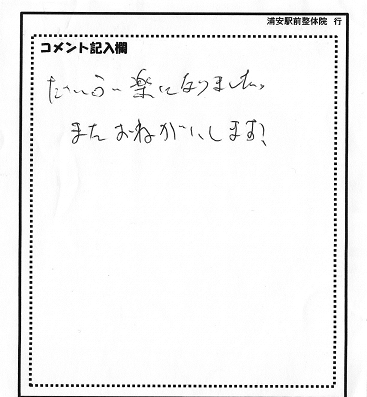 浦安駅前整体院 行
コメント記入欄
だいぶ楽になりました。
またおねがいします！